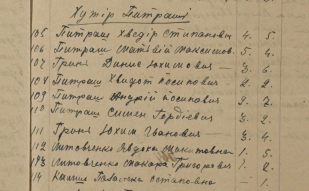 Хутір Питраші
105 Питраш Хведір Стипанович 4. 5.
106 Питраш Матвій Максимов. 5. 4.
107 Гроня Данило Юхимович — 3. 6.
108 Питраш Хведот Йосипович 2. 2.
109 Питраш Андрій Йосипович 2. 7.
110 Питраш Семен 3. 2
111 Гроня Юхим Іванович — 3. 4.
112 Литовченко Явдоха 1. 5.
Литовченко Макара Григорович 1. 2.
114 Остаповна